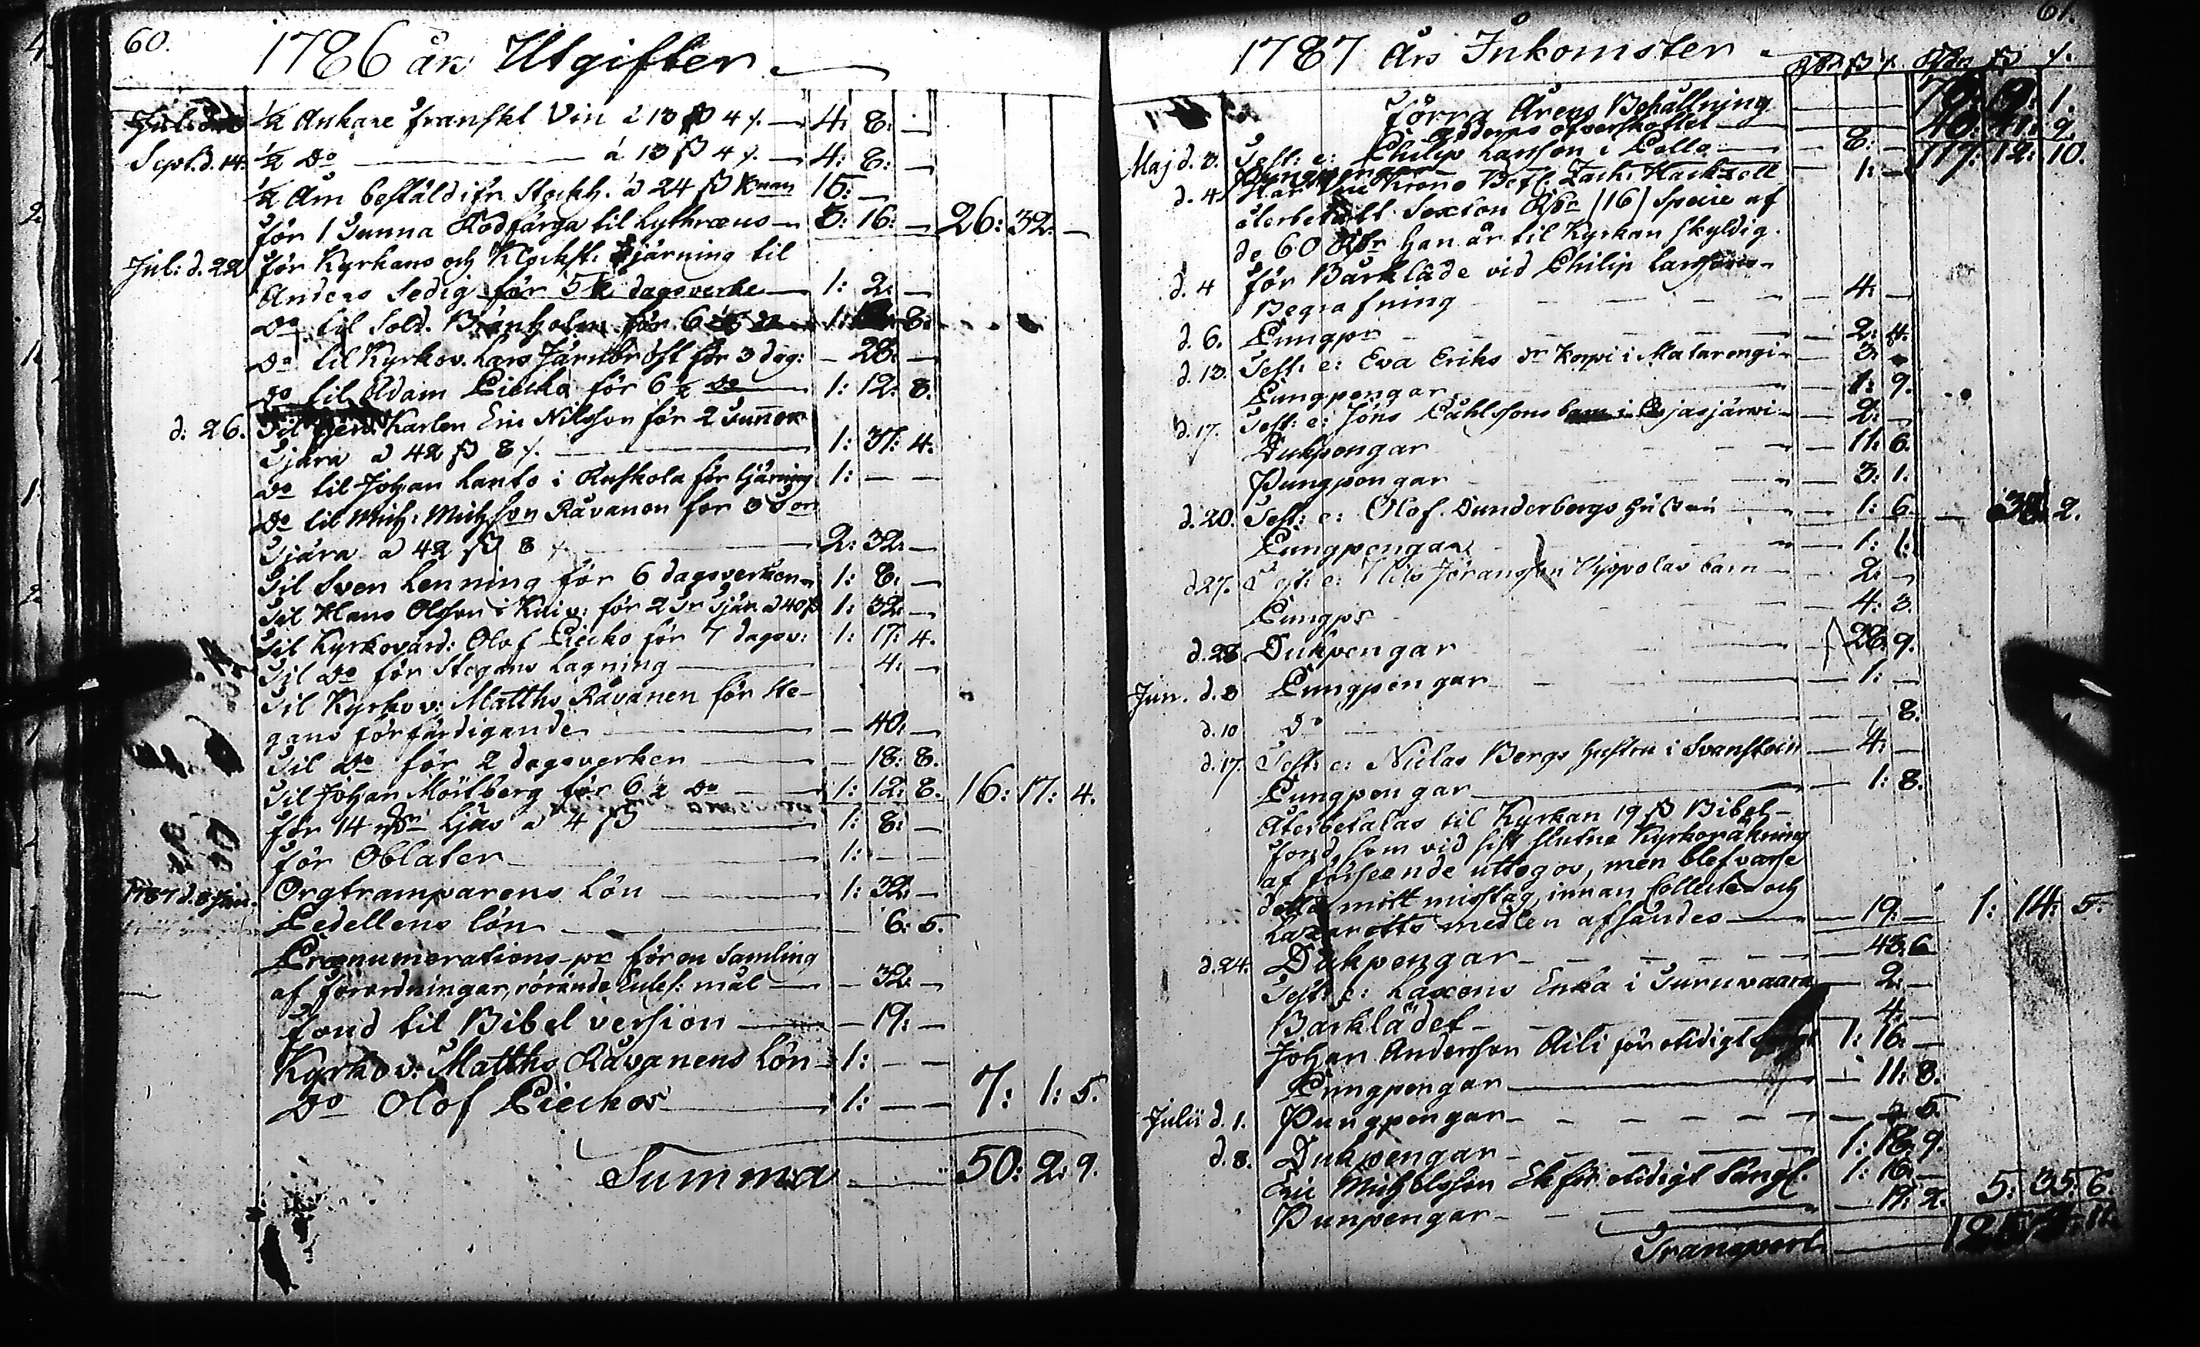 60.
1786 års Utgifter
½ Ankare franskt Vin á 13 ß 4 /. 4: 8: —
Sept. d. 14. ½ Do á 13 ß 4 /. 4: 8: —
½ Åm bestäld ifr. Stockh. á 24 ß Kman 15: —
för 1 Tunna Rödfärga til Lythræus 3: 16: — 26: 32: —
Jul: d. 22 för Kyrkans och Klockst. tjärning til
Anders Sedig för 5 dagsverke 1: 2: —
Do til Sold. Bränholm för 6 1: 8:
Do til Kyrkov. Lars Järnbröst för 3 dag: — 28: —
Do til Adam Piecko för 6 ½ Do 1: 12: 8.
d. 26. Til Karlen Eric Nilsson för 2 Tunnor
Tjära á 42 ß 8 /. 1: 37: 4.
Do til Johan Lanto i Ruskola för tjärning 1: — —
Do til Mich: Michsson Rävanen för 3 Tor
Tjära á 42 ß 8 /. 2: 32: —
Til Sven Lenning för 6 dagsverken 1: 8: —
Til Hans Olsson i Kuiv: för 2 Tr Tjär. á 40 ß 1: 32: —
Til Kyrkovärd: Olof Piecko för 7 dagsv: 1: 17: 4.
Til Do för Stegans lagning 4: —
Til Kyrkov: Matths Rävanen för Ste-
gans förfärdigande — 40: —
Til Do för 2 dagsverken — 18: 8.
Til Johan Mörtberg för 6 ½ Do 1: 12: 8. 16: 17: 4.
för 14 ljus á 4 ß 1: 8: —
för Oblater 1: — —
1787 d. Jan. Orgtramparens Lön 1: 32: —
Pedellens lön 6: 5.
Prænumerations-pr för en Samling
af förordningar, rörande Eccles: mål — 32: —
Fond til Bibel version — 19: —
Kyrkov: Matths Rävanens Lön 1: — —
Do Olof Pieckos 1: — — 7: 1: 5.
Summa 50: 2: 9.
61.
1787 Års Inkomster
Förra Årens Behållning 1.
öfverskottet 9.
Maj d. 3. Test: e: Philip Larsson i Pello — 8: — 117: 12: 10.
Pungpengar 1: —
d. 4 Har Krono Bef. Zach: Hackzell
återbetalt Sexton Rdr /16/ Specie af
de 60 Rdr han är til Kyrkan skyldig.
d. 4 för Bårkläde vid Philip Larssons
Begrafning 4: —
d. 6. Pungpr 2: 4.
d. 13. Test: e: Eva Eriks dr Korpi i Matarengi 3:
Pungpengar 1: 9.
d. 17. Test: e: Jöns Påhlssons barn i 2: —
Dukpengar 11: 6.
Pungpengar 3: 1.
d. 20. Test: e: Olof Dunderbergs hustru 1: 6. — 38: 2.
Pungpengar 1: 1:
d 27. Test: e: Nils Jöransson barn 2: —
Pungpr 4: 3.
d. 28 Dukpengar 28: 9.
Jun. d. 3 Pungpengar 1: —
d. 10 Do 8.
d. 17. Test: e: Niclas Bergs hustru i Svanstein 4: —
Pungpengar 1: 8.
Återbetalas til Kyrkan 19 ß Bibel-
fond, som vid sist slutne Kyrkoräkning
af förseende uttogos, men blef varse
detta mitt misstag, innan Collecter och
Lazaretts medlen afsändes 19: — 1: 14: 5.
d. 24. Dukpengar 43: 6
Test: e: Laxens Enka i Turuvaara 2: —
Barklädet 4: —
Johan Andersson Aili för otidigt 1: 16: —
Pungpengar 11: 8.
Julii d. 1. Pungpengar 5.
d. 8. Dukpengar 1: 18: 9.
Eric Michelsson Ek för otidigt Sängl. 1: 16: —
Punpengar 12: 2. 5: 35: 6.
Transport